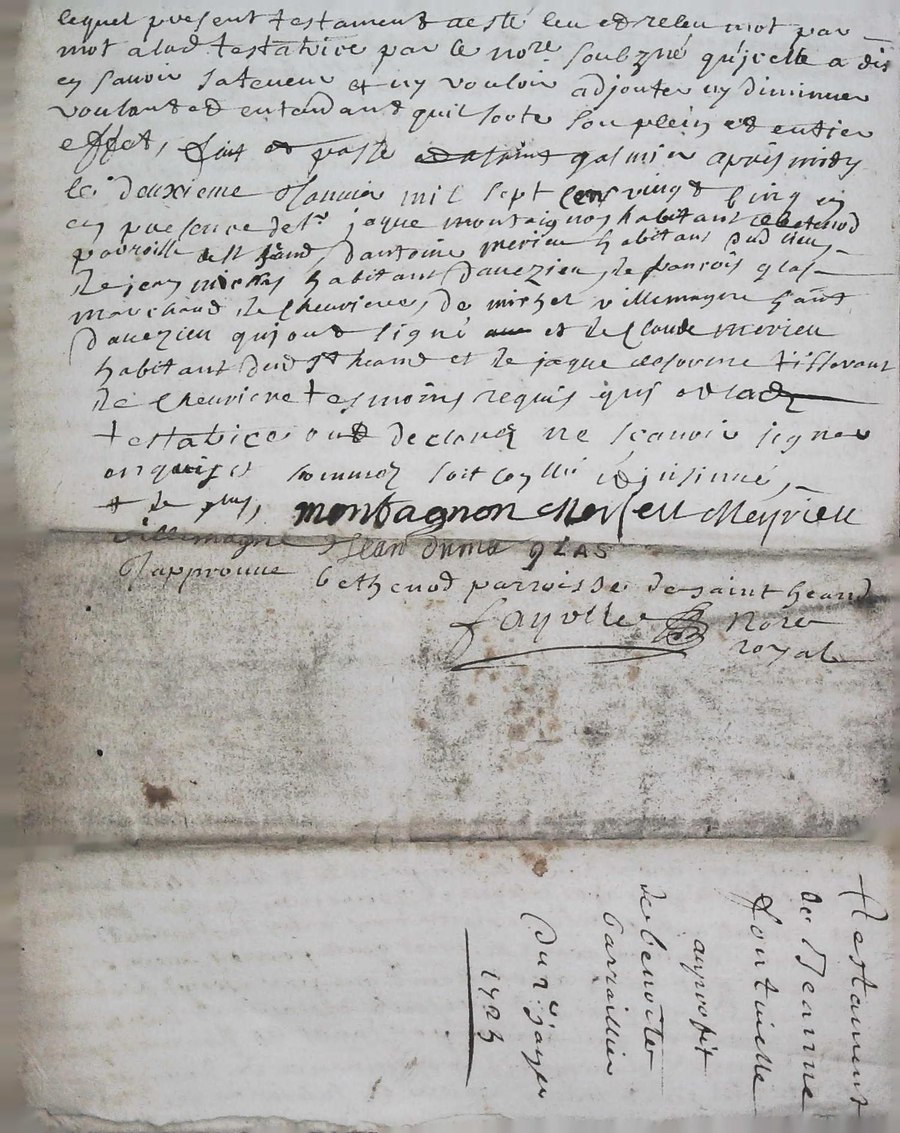 lequel present testament a esté leu et releu mot par
mot a lad testatrice par le nore soubzné qu'jcelle a dit
en savoir sa teneur et ny vouloir adjouter ny diminuer
voulant et entandant quil sorte son plein et entier
effet, fait et passé galmier apres midy
le deuxieme Janvier mil sept cens vingt cinq
en presence de sr jaque montaignon habitant
parroisse de st heand, dantoine merieu habitant dud lieu,
de jean habitant davezieu, de francois glas
marchand de chevrieres, de michel villemagne hant
davezieu qui ont signé et de Claude merieu
habitant dud st heand et de jaque tisserant
de chevriere tesmoins requis qui et lad
testatrice ont declaré ne scavoir signer
enquis et sommez soit et jnsinué,
montagnon Meyrieu
villemagne Jean duma gLAS
Japprouve bethenod parroisse de saint heand
fayolle nore
royal
Testament
de Jeanne
fontvieille
au proffit
de benoite
barraillier
Du 2e janver
1725